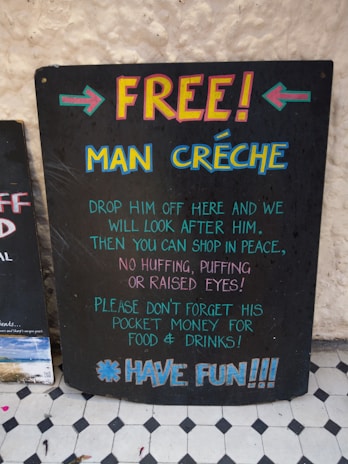 FREE!
MAN CRÉCHE
DROP HIM OFF HERE AND WE
WILL LOOK AFTER HIM.
THEN YOU CAN SHOP IN PEACE,
NO HUFFING, PUFFING
OR RAISED EYES!
PLEASE DON'T FORGET HIS
POCKET MONEY FOR
FOOD & DRINKS!
HAVE FUN!!!
FF
D
AL